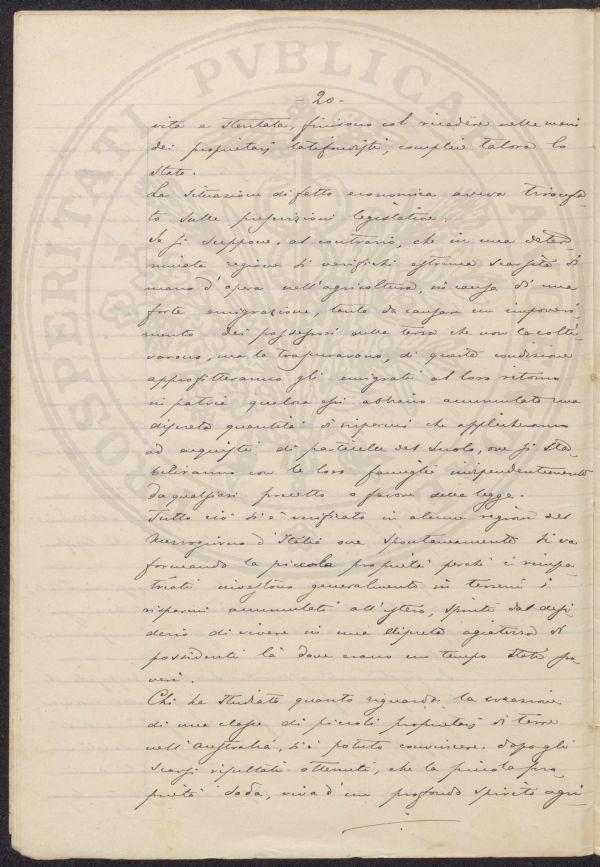 - 20 -
vita e stentata, finirono col ricadere nelle mani
dei proprietarj latifondisti, complice talora lo
Stato.
La situazione di fatto economica aveva trionfa-
to sulle prescrizioni legislative.
Se si suppone, al contrario, che in una deter-
minata regione si verifichi estrema scarsità di
mano d'opera nell'agricoltura, in causa di una
forte emigrazione, tanto da causare un impoveri-
mento dei possessori della terra che non la colti-
varono, ma la trascuravano, di questa condizione
approfitteranno gli emigrati al loro ritorno
in patria qualora essi abbiano accumulato una
discreta quantità di risparmi che applicheranno
ad acquisti di particelle del suolo, ove si sta-
biliranno con le loro famiglie indipendentemente
da qualsiasi precetto a favore della legge.
Tutto ciò si è verificato in alcune regioni del
Mezzogiorno d'Italia ove spontaneamente si va
formando la piccola proprietà perchè i rimpa-
triati investono generalmente in terreni i
risparmi accumulati all'estero, spinti dal desi-
derio di vivere in una discreta agiatezza di
possidenti là dove erano un tempo stati po-
veri.
Chi ha studiato quanto riguarda la creazione
di una classe di piccoli proprietarj di terre
nell'Australia, si è potuto convincere, dopo gli
scarsi risultati ottenuti, che la piccola pro-
prietà soda, viva d'un profondo spirito agri-